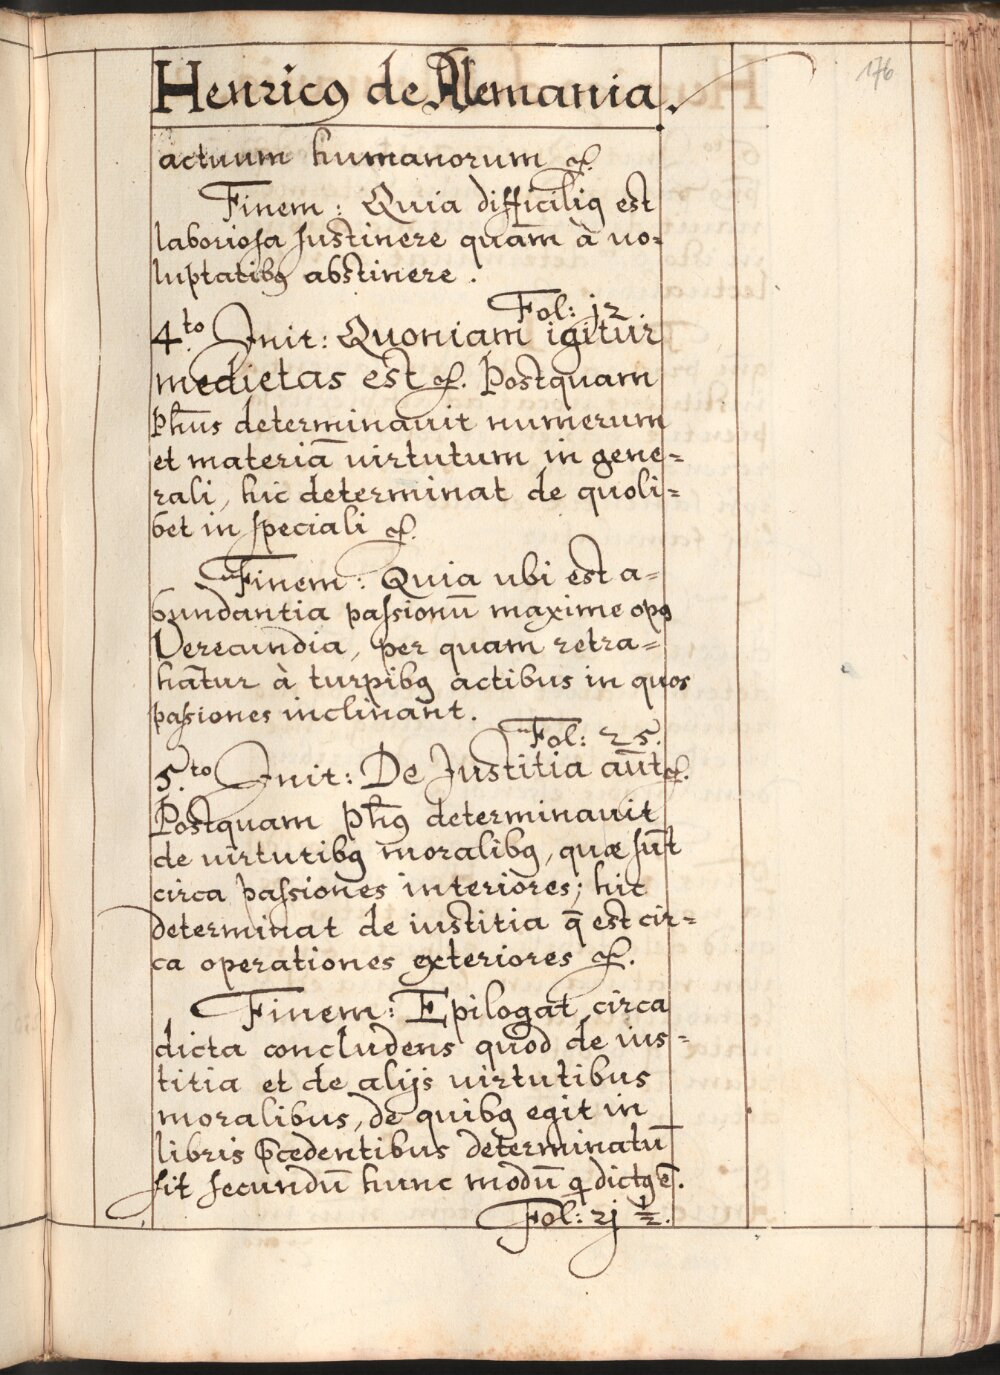 Henricꝯ de Alemania.
176
actuum humanorum &.
Finem: Quia difficiliꝯ est
laboriosa sustinere quam̄ à uo=
luptatibꝯ abstinere.
Fol: 12
4.to Init: Quoniam igitur
medietas est &. Postquam
Ph̄us determinauit numerum
et materiā uirtutum in gene=
rali, hic determinat de quoli=
bet in speciali &.
Finem: Quia ubi est a=
bundantia passionū maxime opꝯ
Verecundia, per quam retra=
han̄tur à turpibꝯ actibus in quos
pasiones inclinant.
Fol: 25.
5.to Init: De Justitia aūt &.
Postquam Ph̄ꝯ determinauit
de uirtutibꝯ moralibꝯ, quæ sūt
circa passiones interiores; hic
determinat de iustitia q̄ est cir=
ca operationes exteriores &.
Finem: Epilogat circa
dicta concludens quod de ius=
titia et de alijs uirtutibus
moralibus, de quibꝯ egit in
libris p̄cedentibus determinatū
sit secundū hunc modū q dictꝯ ē.
Fol: 21 ½.